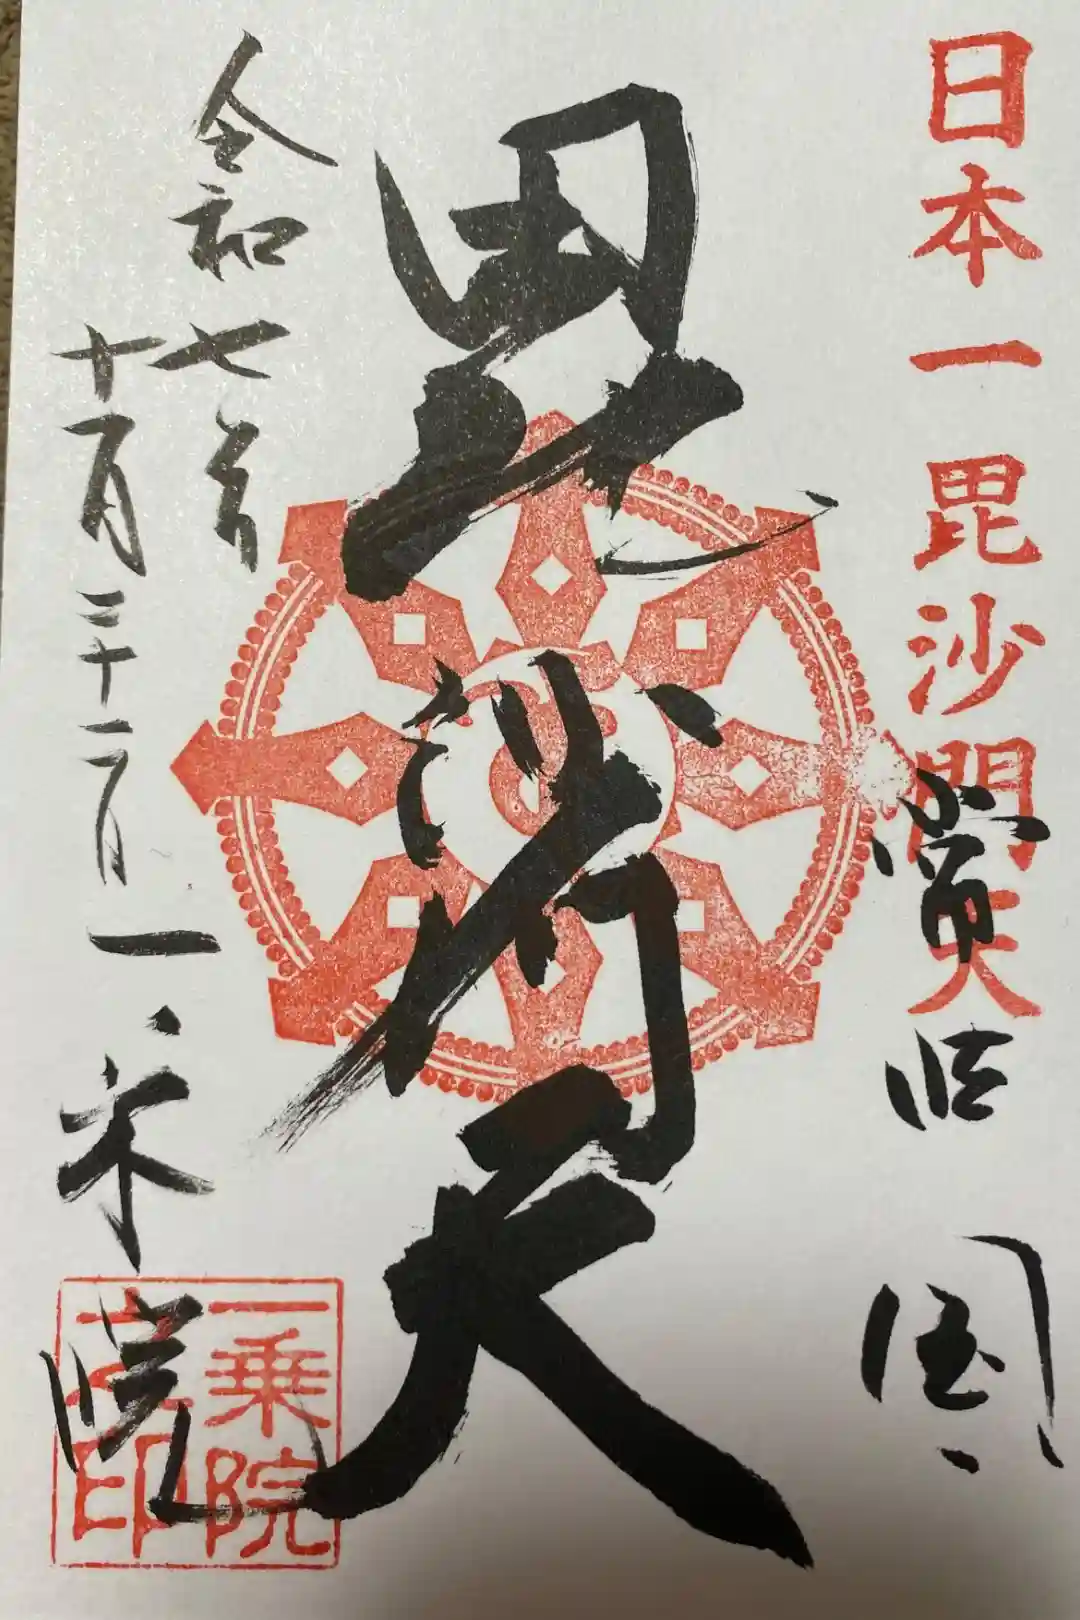 日本一毘沙門天
常陸国
毘沙門天
令和七年
十月二十一日
一乗院
一乗院
之印